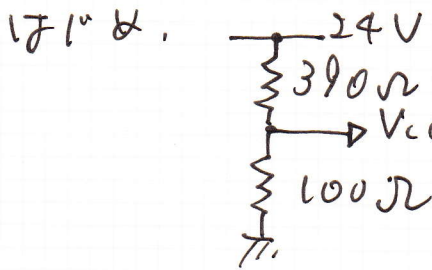 はじめ.
24V
390Ω
Vcc
100Ω